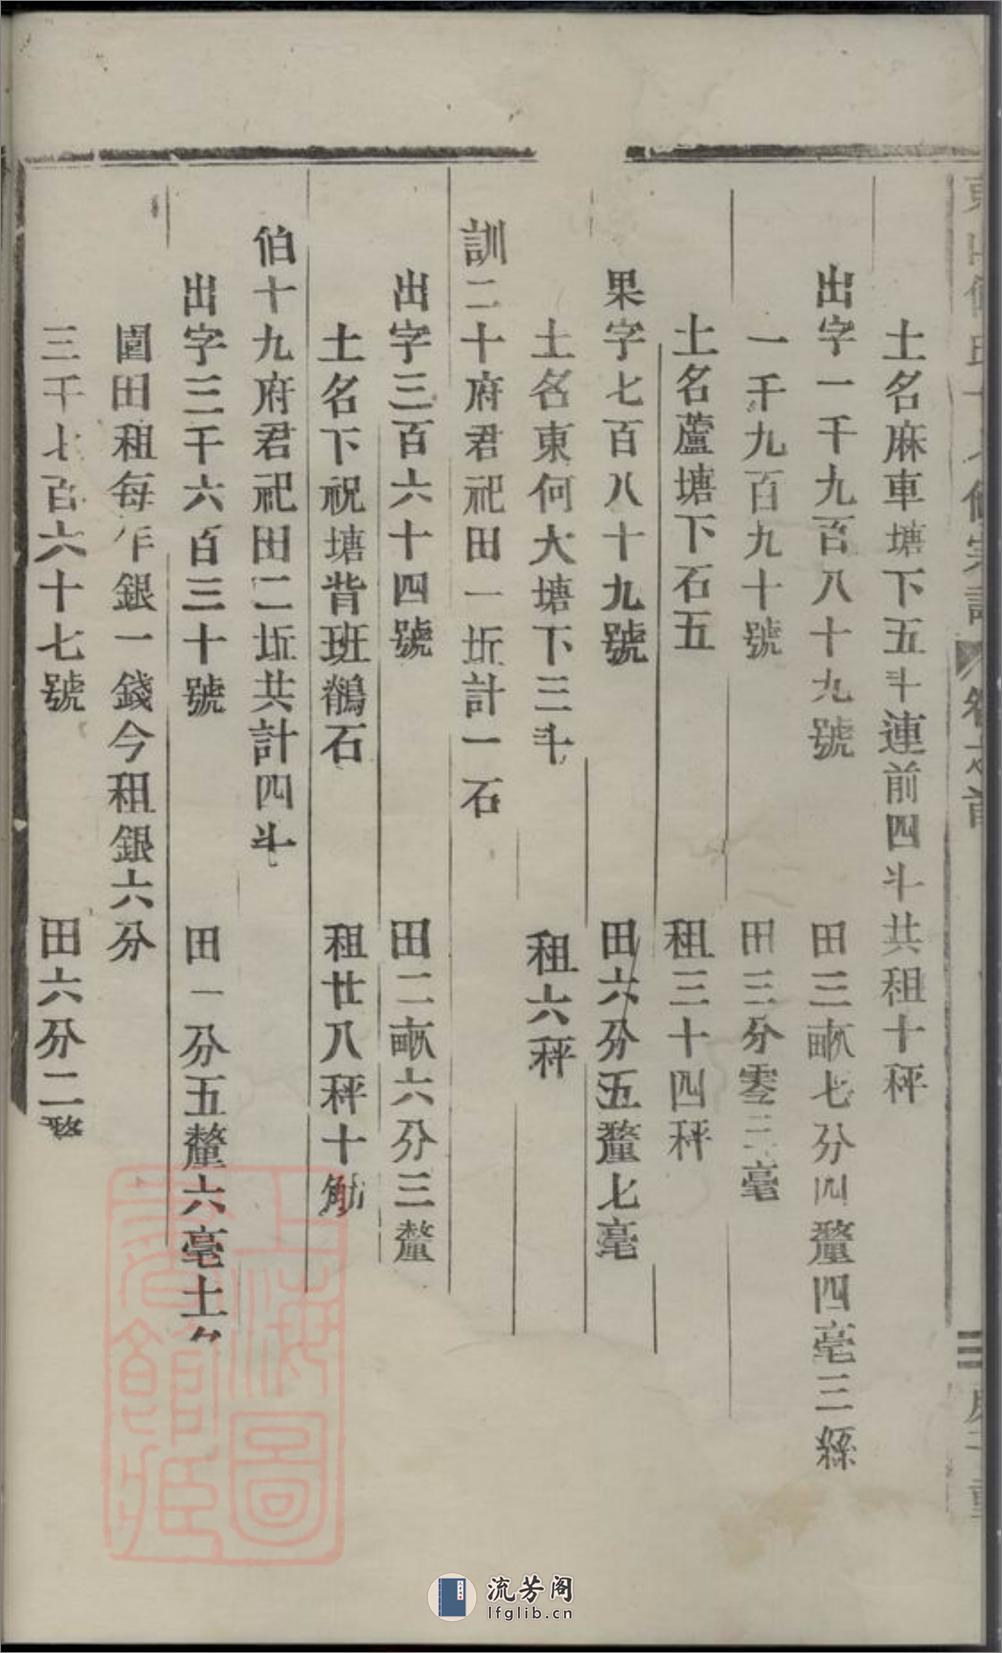 土名麻車塘下五斗連前四斗共租十秤
出字一千九百八十九號 田三畝七分四釐四毫三絲
一千九百九十號 田三分零三毫
土名蘆塘下石五 租三十四秤
果字七百八十九號 田六分五釐七毫
土名東何大塘下三斗 租六秤
訓二十府君祀田一坵計一石
出字三百六十四號 田二畝六分三釐
土名下祝塘背班鶺石 租廿八秤十觔
伯十九府君祀田二坵共計四斗
出字三千六百三十號 田一分五釐六毫土名
園田租每年銀一錢今租銀六分
三千七百六十七號 田六分二釐
上海圖書館藏
流芳阁
lfglib.cn